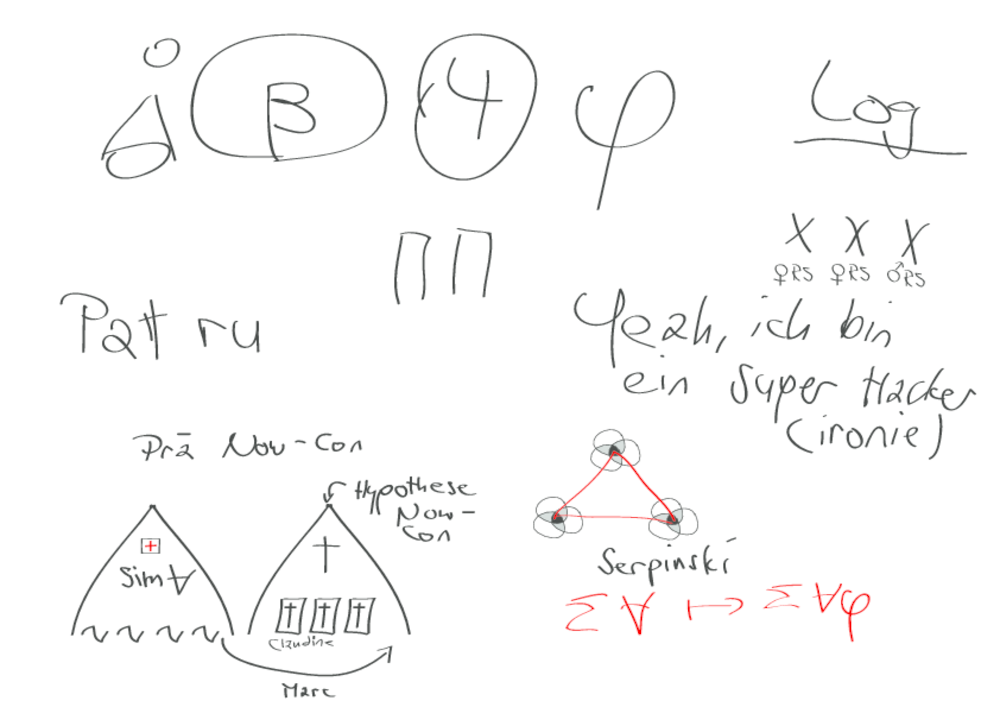 β 4 φ Log
X X X
♀RS ♀RS ♂RS
Yeah, ich bin
ein Super Hacker
(ironie)
Patt ru
Prä Now-Con
Hypothese
Now-
Con
Sim∀
Claudine
Marc
Serpinski
Σ∀ ↦ Σ∀φ